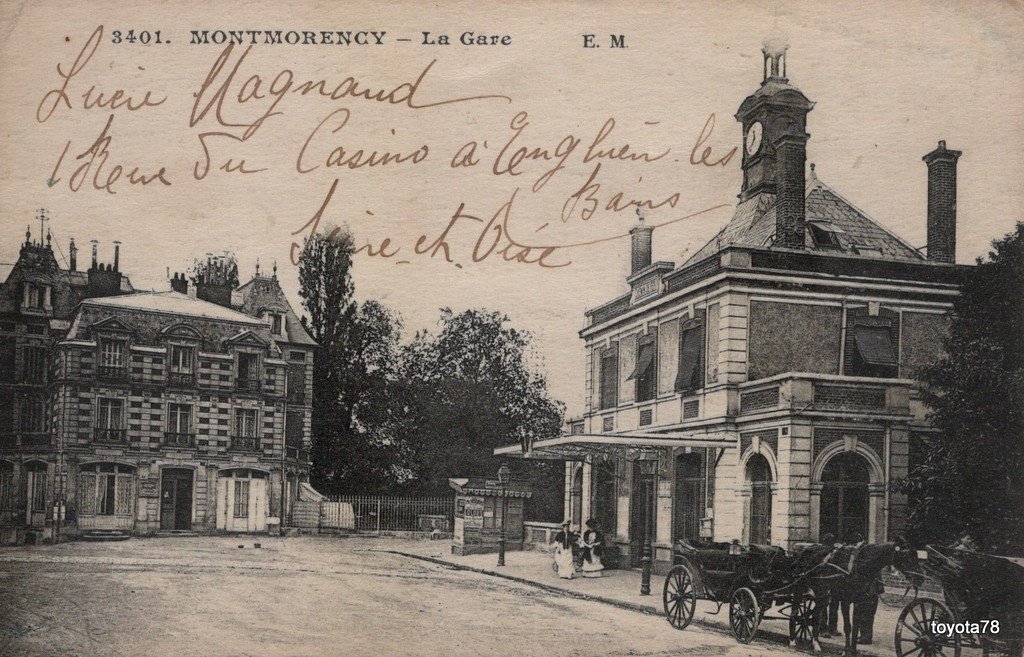 3401. MONTMORENCY – La Gare E. M.
Lucie Magnaud
1 Rue du Casino à Enghien les
Bains
Seine et Oise
toyota78